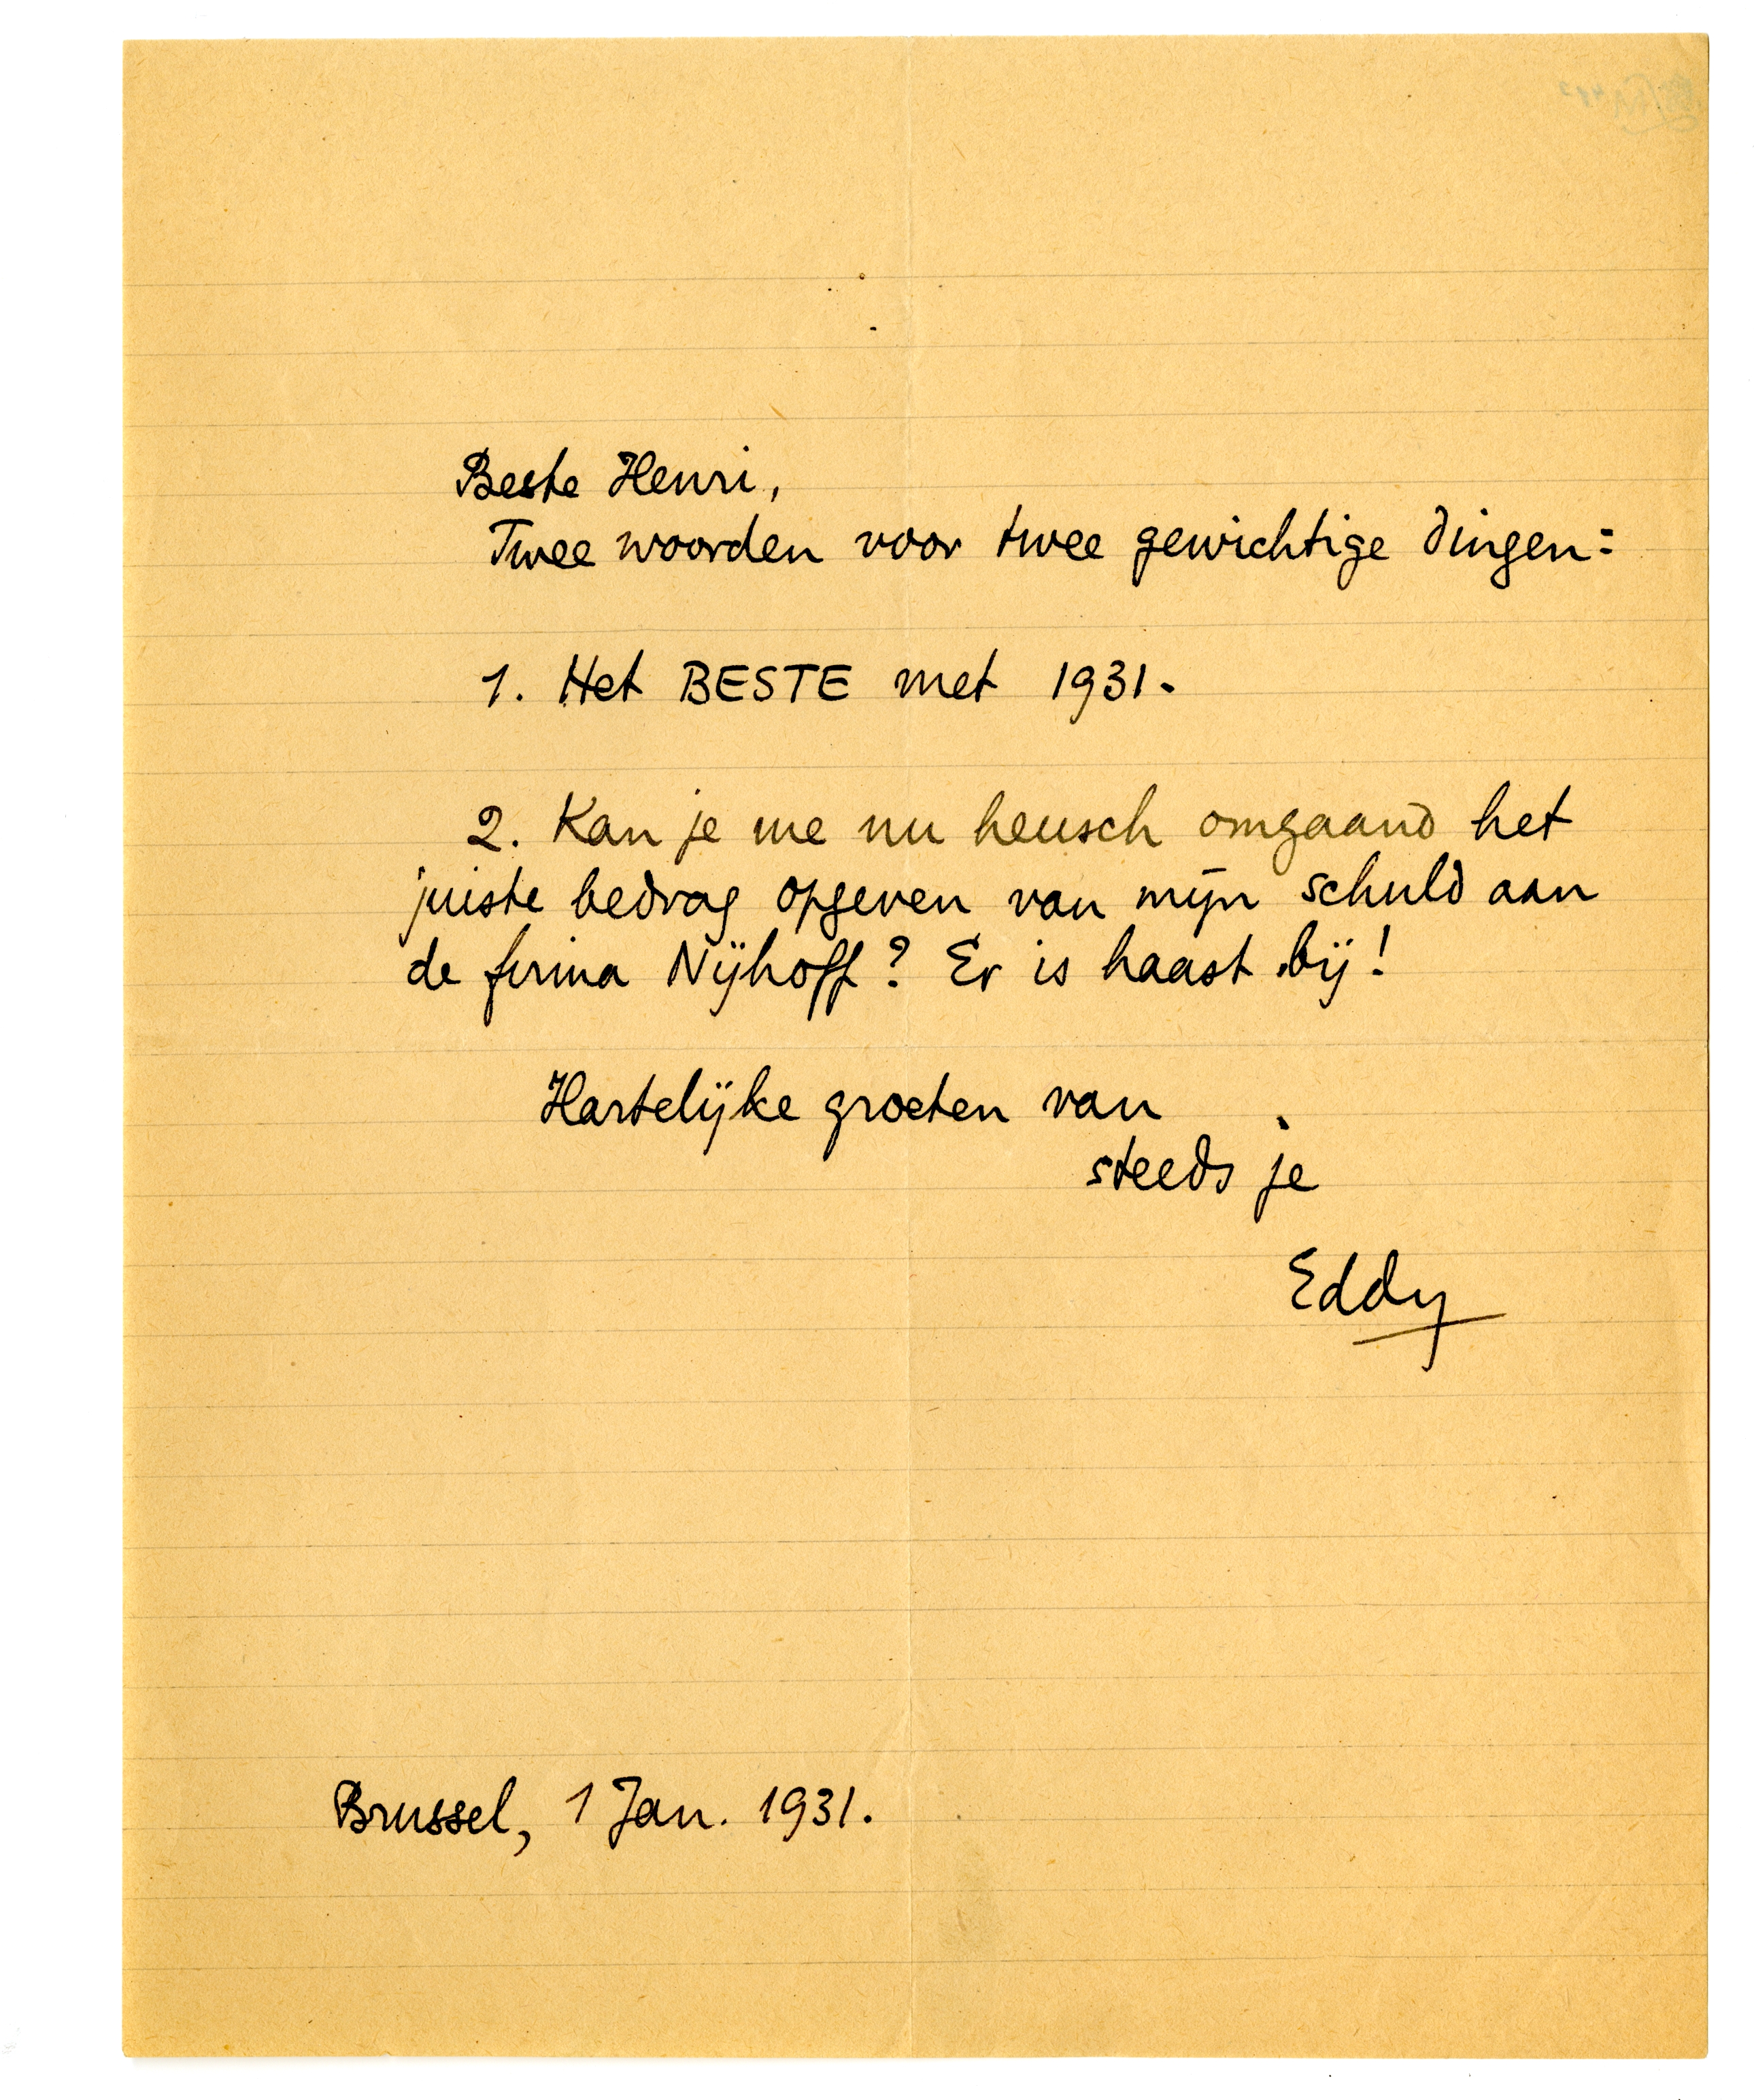 Beste Henri,
Twee woorden voor twee gewichtige dingen:
1. Het BESTE met 1931.
2. Kan je me nu heusch omgaand het
juiste bedrag opgeven van mijn schuld aan
de firma Nijhoff? Er is haast bij!
Hartelijke groeten van
steeds je
Eddy
Brussel, 1 Jan. 1931.